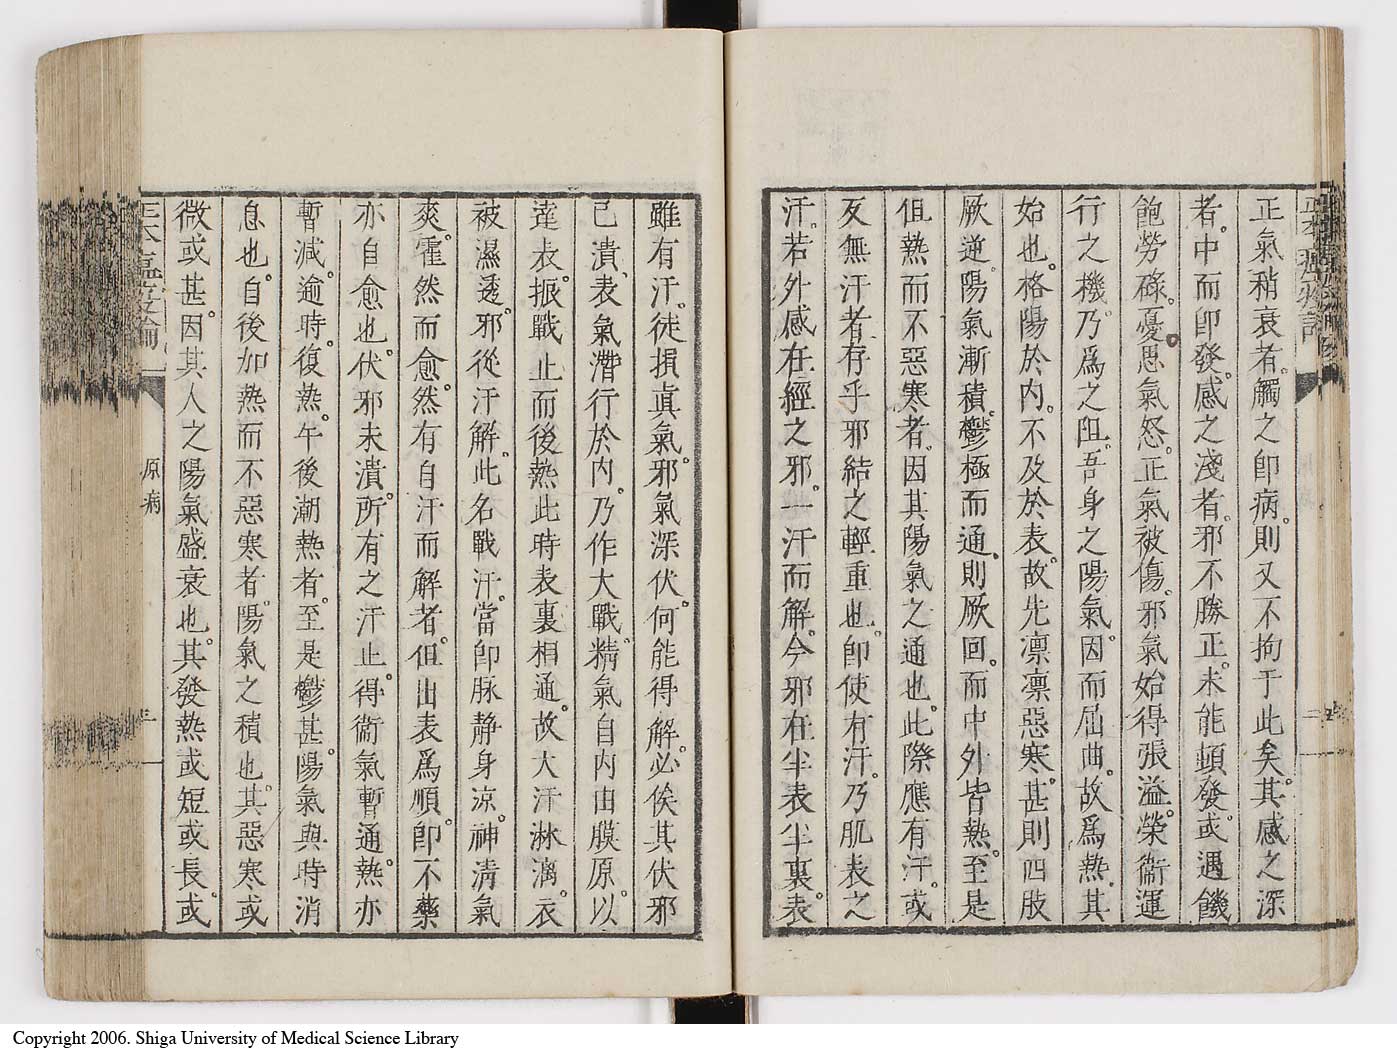 正氣稍衰者。觸之卽病。則又不拘于此矣。其感之深
者。中而卽發。感之淺者。邪不勝正。未能頓發。或遇饑
飽勞碌。憂思氣怒。正氣被傷。邪氣始得張溢。榮衞運
行之機。乃爲之阻。吾身之陽氣。因而屈曲。故爲熱。其
始也。格陽於內。不及於表。故先凛凛惡寒。甚則四肢
厥逆。陽氣漸積。鬱極而通。則厥回。而中外皆熱。至是
但熱而不惡寒者。因其陽氣之通也。此際應有汗。或
反無汗者。存乎邪結之輕重也。卽使有汗。乃肌表之
汗。若外感在經之邪。一汗而解。今邪在半表半裏。表
雖有汗。徒損眞氣。邪氣深伏。何能得解。必俟其伏邪
已潰。表氣潛行於內。乃作大戰。精氣自內由膜原。以
達表。振戰止而後熱。此時表裏相通。故大汗淋漓。衣
被濕透。邪從汗解。此名戰汗。當卽脉靜身凉。神清氣
爽。霍然而愈。然有自汗而解者。但出表爲順。卽不藥
亦自愈也。伏邪未潰。所有之汗止。得衞氣暫通。熱亦
暫減。逾時。復熱。午後潮熱者。至是鬱甚。陽氣與時消
息也。自後加熱而不惡寒者。陽氣之積也。其惡寒或
微或甚。因其人之陽氣盛衰也。其發熱或短或長。或
原病
Copyright 2006. Shiga University of Medical Science Library